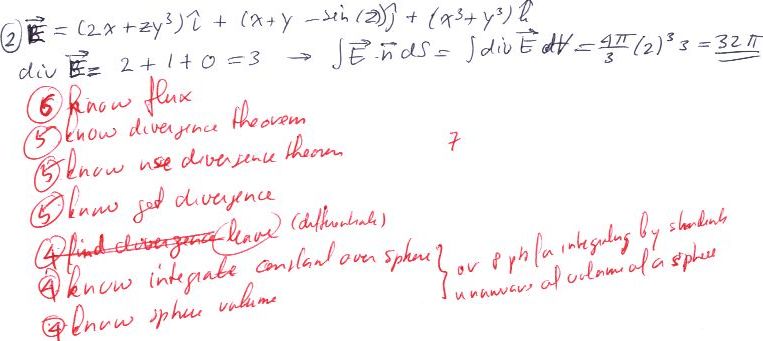 ② E⃗ = (2x + zy³) î + (x + y - sin(z)) ĵ + (x³ + y³) k̂
div E⃗ = 2 + 1 + 0 = 3 → ∫E⃗·n⃗ dS = ∫div E⃗ dV = 4π/3 (2)³ 3 = 32π
⑥ know flux
⑤ know divergence theorem
7
⑤ know use divergence theorem
⑤ know get divergence
④ find divergence leave (differentials)
④ know integrate constant over sphere } or 8 pts for integrating by students
④ know sphere volume unaware of volume of a sphere